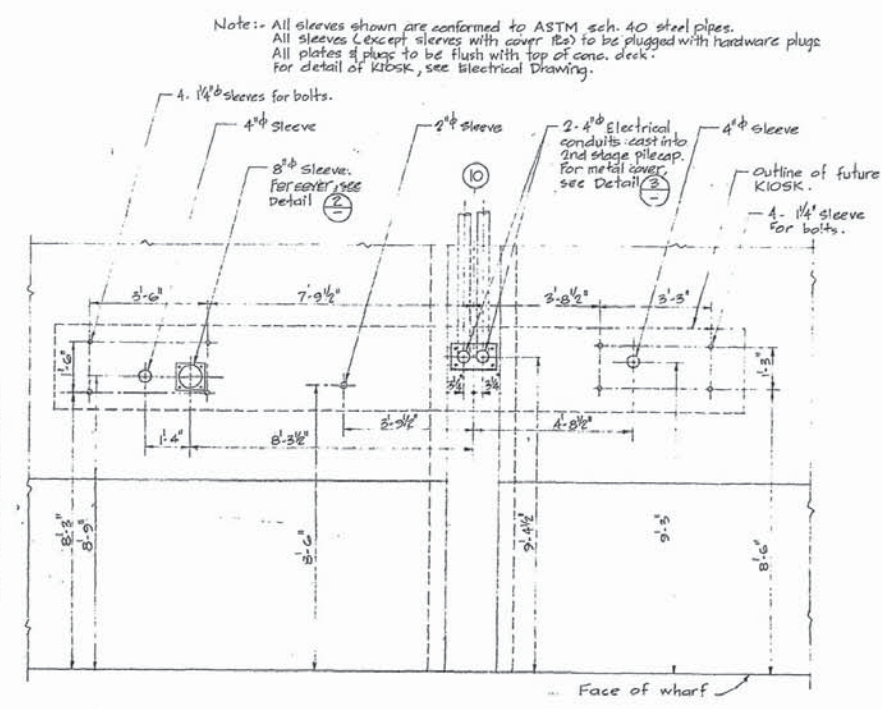 Note:- All sleeves shown are conformed to ASTM sch. 40 steel pipes.
All sleeves (except sleeves with cover Pls) to be plugged with hardware plugs
All plates & plugs to be flush with top of conc. deck.
For detail of KIOSK, see Electrical Drawing.
4- 1¼"ϕ sleeves for bolts.
4"ϕ Sleeve
8"ϕ Sleeve.
For cover, see
Detail 2
-
2"ϕ Sleeve
10
2-4"ϕ Electrical
conduits cast into
2nd stage pilecap.
For metal cover,
see Detail 3
-
4"ϕ Sleeve
Outline of future
KIOSK.
4- 1¼" Sleeve
For bolts.
3'-6"
7'-9½"
3'-8½"
3'-3"
1'-6"
1'-3"
3¼"
3¼"
1'-4"
8'-3½"
3'-9½"
4'-8½"
8'-3"
8'-9"
8'-6"
9'-4½"
9'-3"
8'-6"
Face of wharf